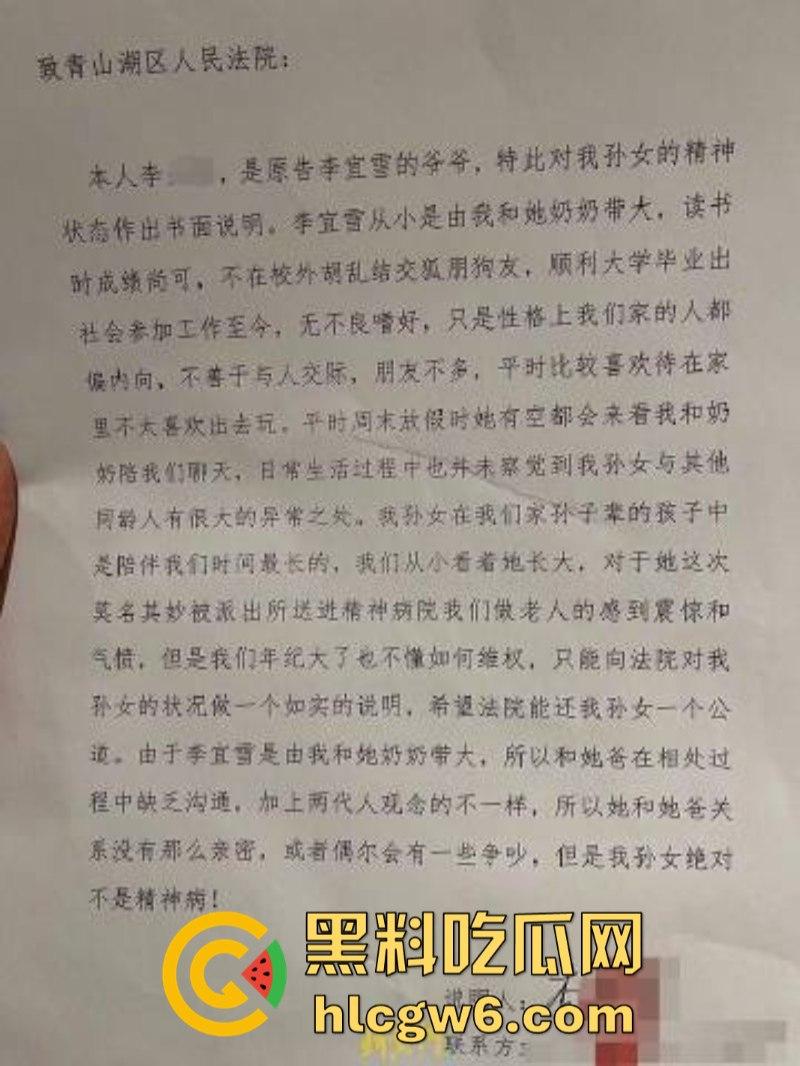 致青山湖区人民法院：
本人李，是原告李宜雪的爷爷，特此对我孙女的精神
状态作出书面说明。李宜雪从小是由我和她奶奶带大，读书
时成绩尚可，不在校外胡乱结交狐朋狗友，顺利大学毕业出
社会参加工作至今，无不良嗜好，只是性格上我们家的人都
偏内向，不善于与人交际，朋友不多，平时比较喜欢待在家
里不太喜欢出去玩。平时周末放假时她有空都会来看我和奶
奶陪我们聊天，日常生活过程中也并未察觉到我孙女与其他
同龄人有很大的异常之处。我孙女在我们家孙子辈的孩子中
是陪伴我们时间最长的，我们从小看着她长大，对于她这次
莫名其妙被派出所送进精神病院我们做老人的感到震惊和
气愤，但是我们年纪大了也不懂如何维权，只能向法院对我
孙女的状况做一个如实的说明，希望法院能还我孙女一个公
道。由于李宜雪是由我和她奶奶带大，所以和她爸在相处过
程中缺乏沟通，加上两代人观念的不一样，所以她和她爸关
系没有那么亲密，或者偶尔会有一些争吵，但是我孙女绝对
不是精神病！
黑料吃瓜网
说明人：
hlcgw6.com
联系方